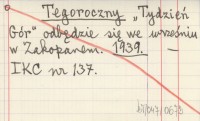 Tegoroczny „Tydzień
Gór" odbędzie się we wrześniu
w Zakopanem. 1939. —
IKC nr 137.